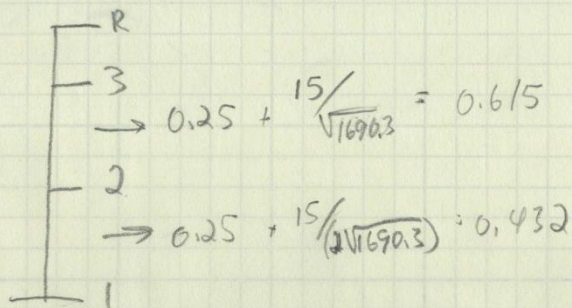 R
3
→ 0.25 + 15/√1690.3 = 0.615
2
→ 0.25 + 15/(2√1690.3) = 0.432
1